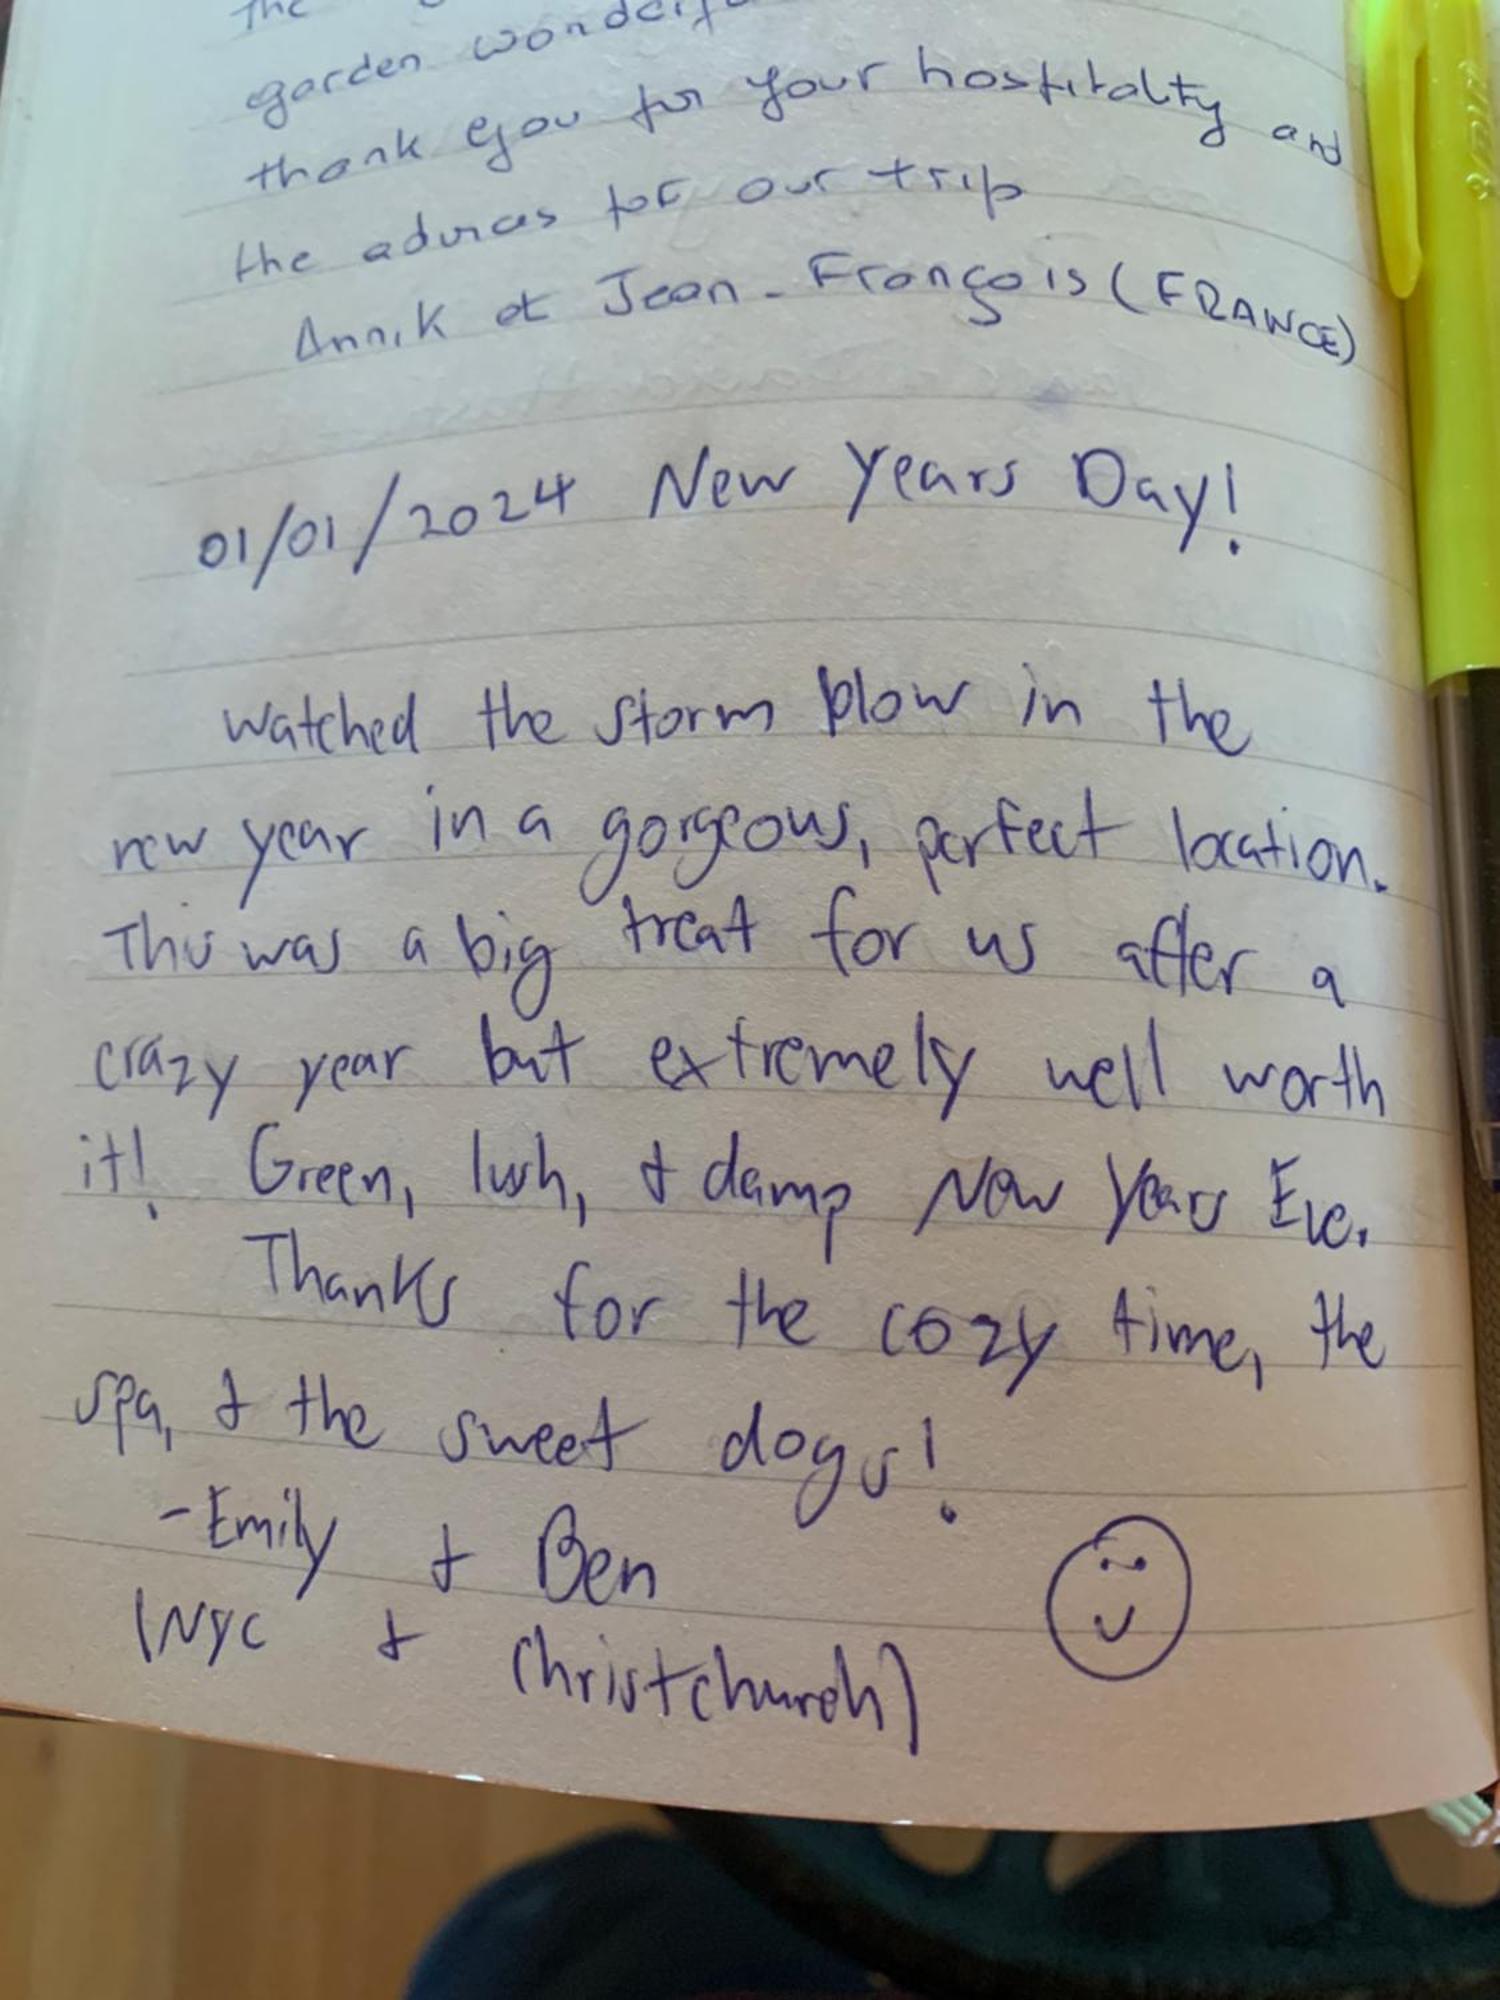 the
garden
thank you for your hospitality and
the advices for our trip
Annik et Jean-François (FRANCE)
01/01/2024 New Years Day!
Watched the storm blow in the
new year in a gorgeous, perfect location.
This was a big treat for us after a
crazy year but extremely well worth
it! Green, lush, & damp New Years Eve.
Thanks for the cozy time, the
spa, & the sweet dogs!
-Emily & Ben
(NYC & Christchurch)